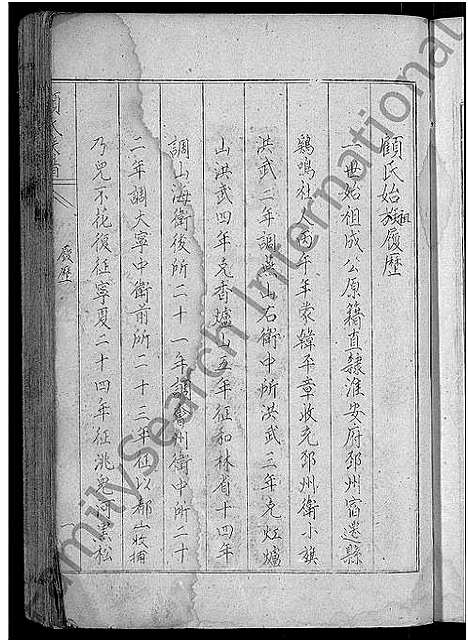 顧氏始祖族履歷
一世始祖成公原籍直隸淮安府邳州宿遷縣
鷄鳴社人丙午年蒙韓平章收充邳州衛小旗
洪武二年調燕山右衛中所洪武三年克紅爐
山洪武四年克香爐山五年征和林省十四年
調山海衛後所二十一年調會州衛中所二十
二年調大寧中衛前所二十三年征以都山收捕
乃兒不花復征寧夏二十四年征洮兒河黑松
履歷
一
FamilySearch International